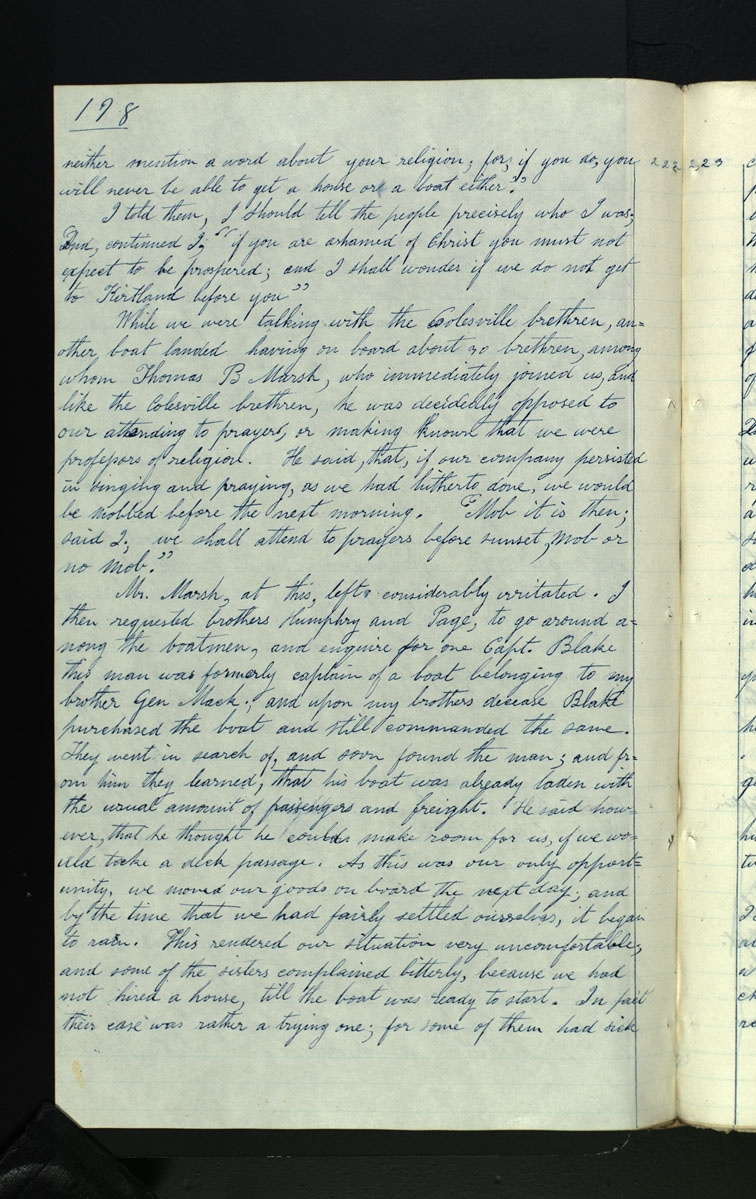 198
neither mention a word about your religion; for, if you do, you 222 223
will never be able to get a house or a boat either."
I told them, I should tell the people precisely who I was;
And, continued I, "if you are ashamed of Christ you must not
expect to be prospered; and I shall wonder if we do not get
to Kirtland before you"
While we were talking with the Colesville brethren, an=
other boat landed having on board about 30 brethren, among
whom Thomas B Marsh, who immediately joined us, and
like the Colesville brethren, he was decidedly opposed to
our attending to prayers, or making known that we were
professors of religion. He said, that, if our company persisted
in singing and praying, as we had hitherto done, we would
be mobbed before the next morning. "Mob it is then;
said I; we shall attend to prayers before sunset, Mob or
no mob."
Mr. Marsh, at this, left considerably irritated. I
then requested brothers Humphry and Page, to go around a=
mong the boatmen, and enquire for one Capt. Blake
this man was formerly captain of a boat belonging to my
brother Gen Mack; and upon my brothers decease Blake
purchased the boat and still commanded the same.
They went in search of, and soon found the man; and fr=
om him they learned, that his boat was already laden with
the usual amount of passengers and freight. He said how=
ever, that he thought he could make room for us, if we wo=
uld take a deck passage. As this was our only opport=
unity, we moved our goods on board the next day; and
by the time that we had fairly settled ourselves, it began
to rain. This rendered our situation very uncomfortable,
and some of the sisters complained bitterly, because we had
not hired a house, till the boat was ready to start. In fact
their case was rather a trying one; for some of them had sick